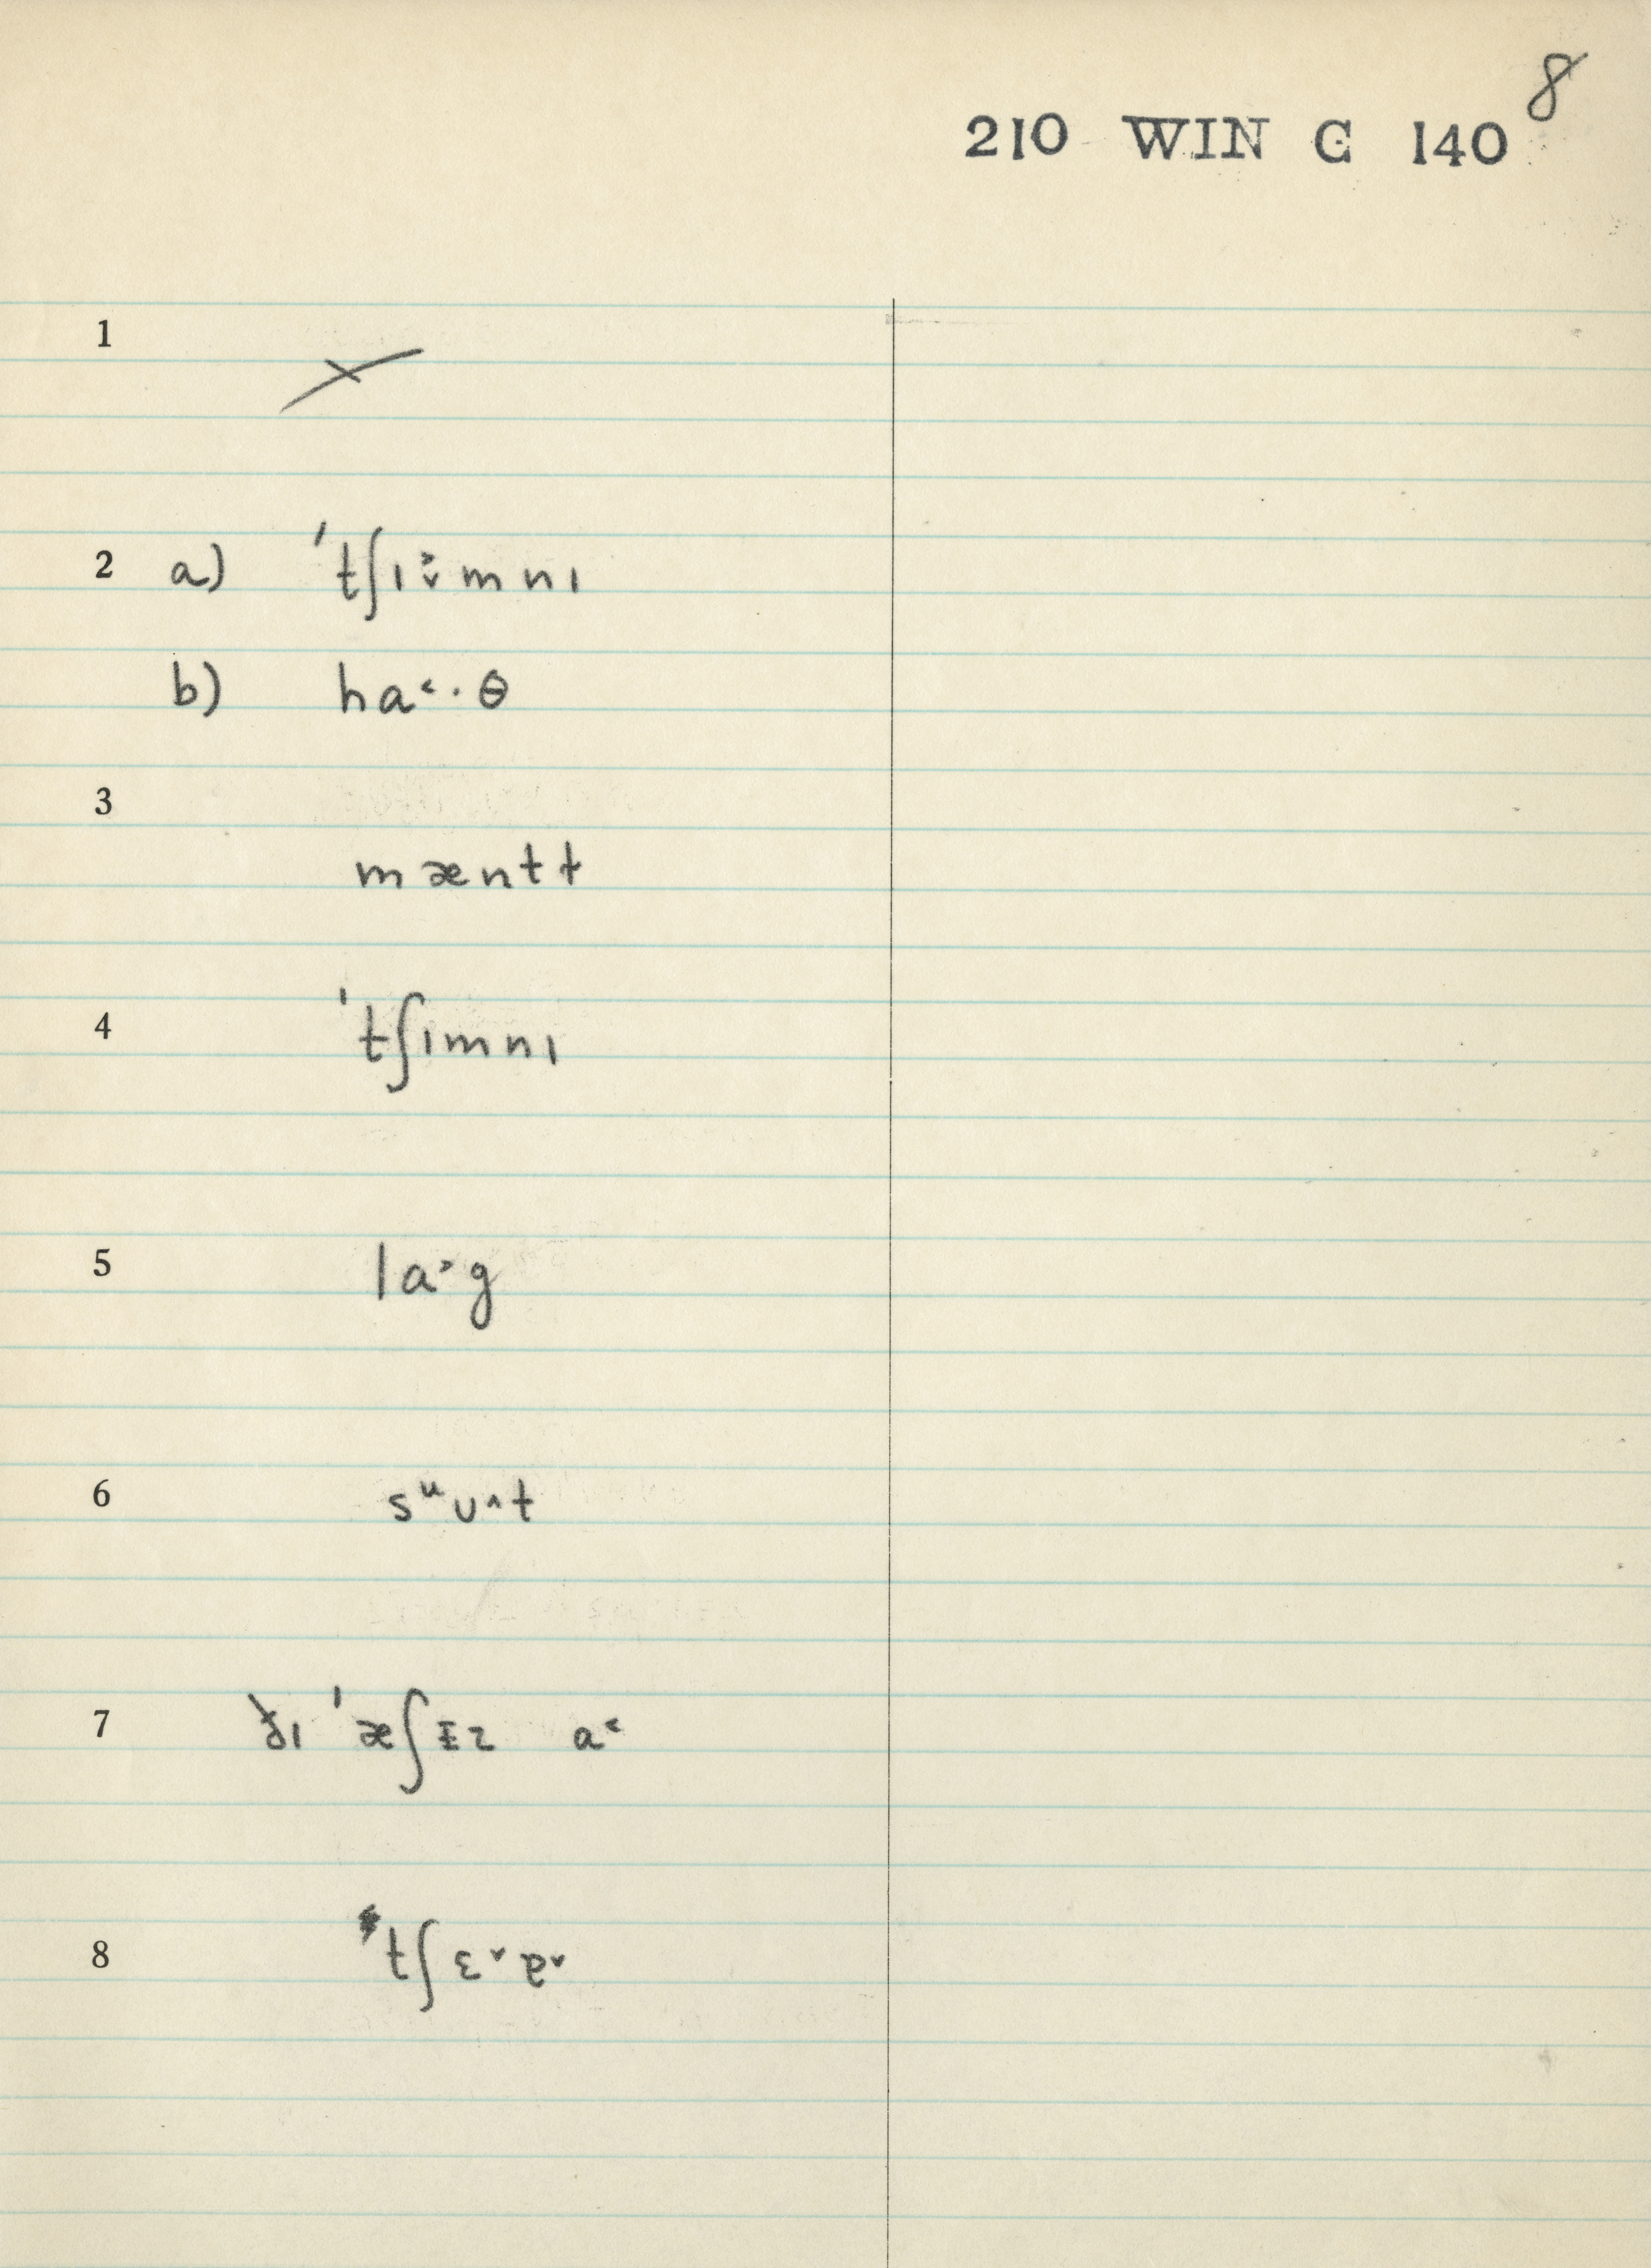 8
210 WIN C 140
1
2 a) ˈtʃɪ˃˅mnɪ
b) ha˂·θ
3
mæntt
4 ˈtʃɪmnɪ
5 la˃g
6 sᵘʊ˄t
7 ðɪ ˈæʃɪz a˂
8 tʃɛ˅ɐ˅